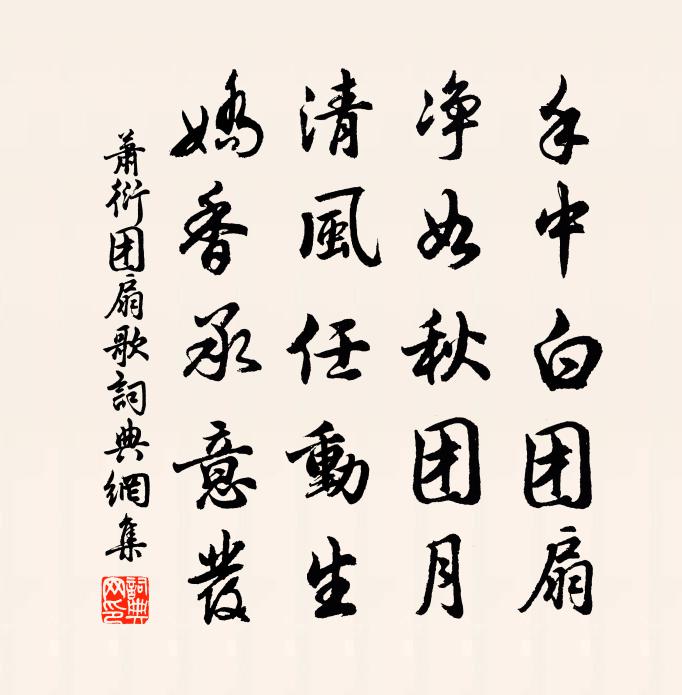 手中白团扇
净如秋团月
清風任動生
嬌香承意發
蕭衍团扇歌詞典網集
詞典網印